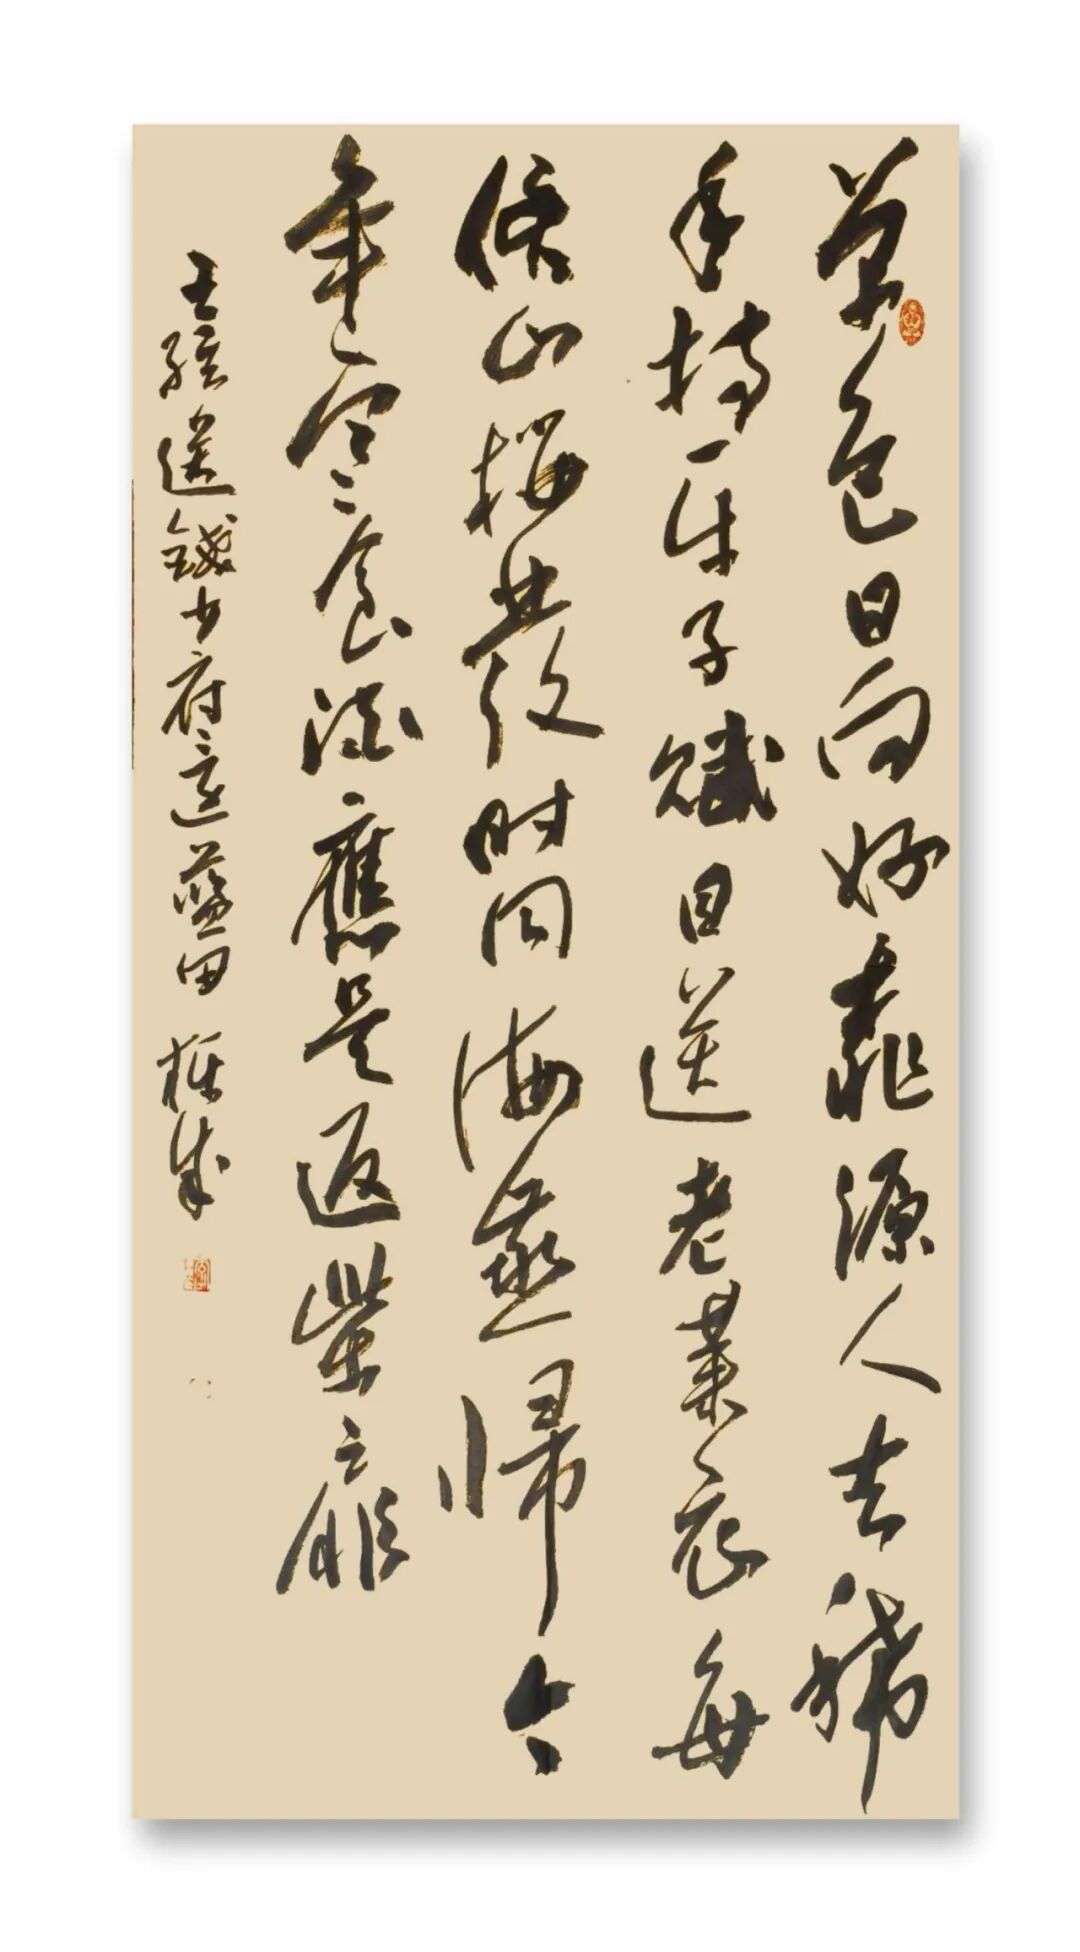 草色日向好桃源人去稀
手持平子賦目送老萊衣每
候山櫻發时同海燕帰今
年寒食酒應是返柴扉
王維送錢少府還藍田